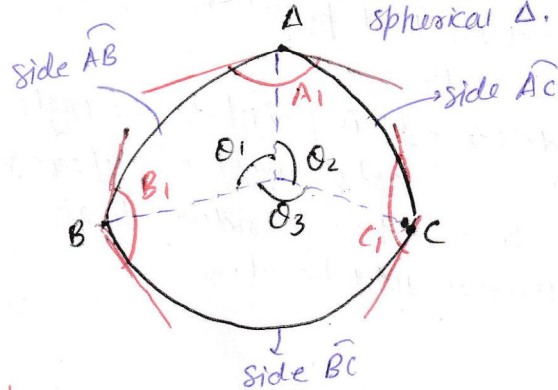 A
spherical Δ.
side AB
side AC
A1
θ1
θ2
B1
θ3
B
C1
C
side BC